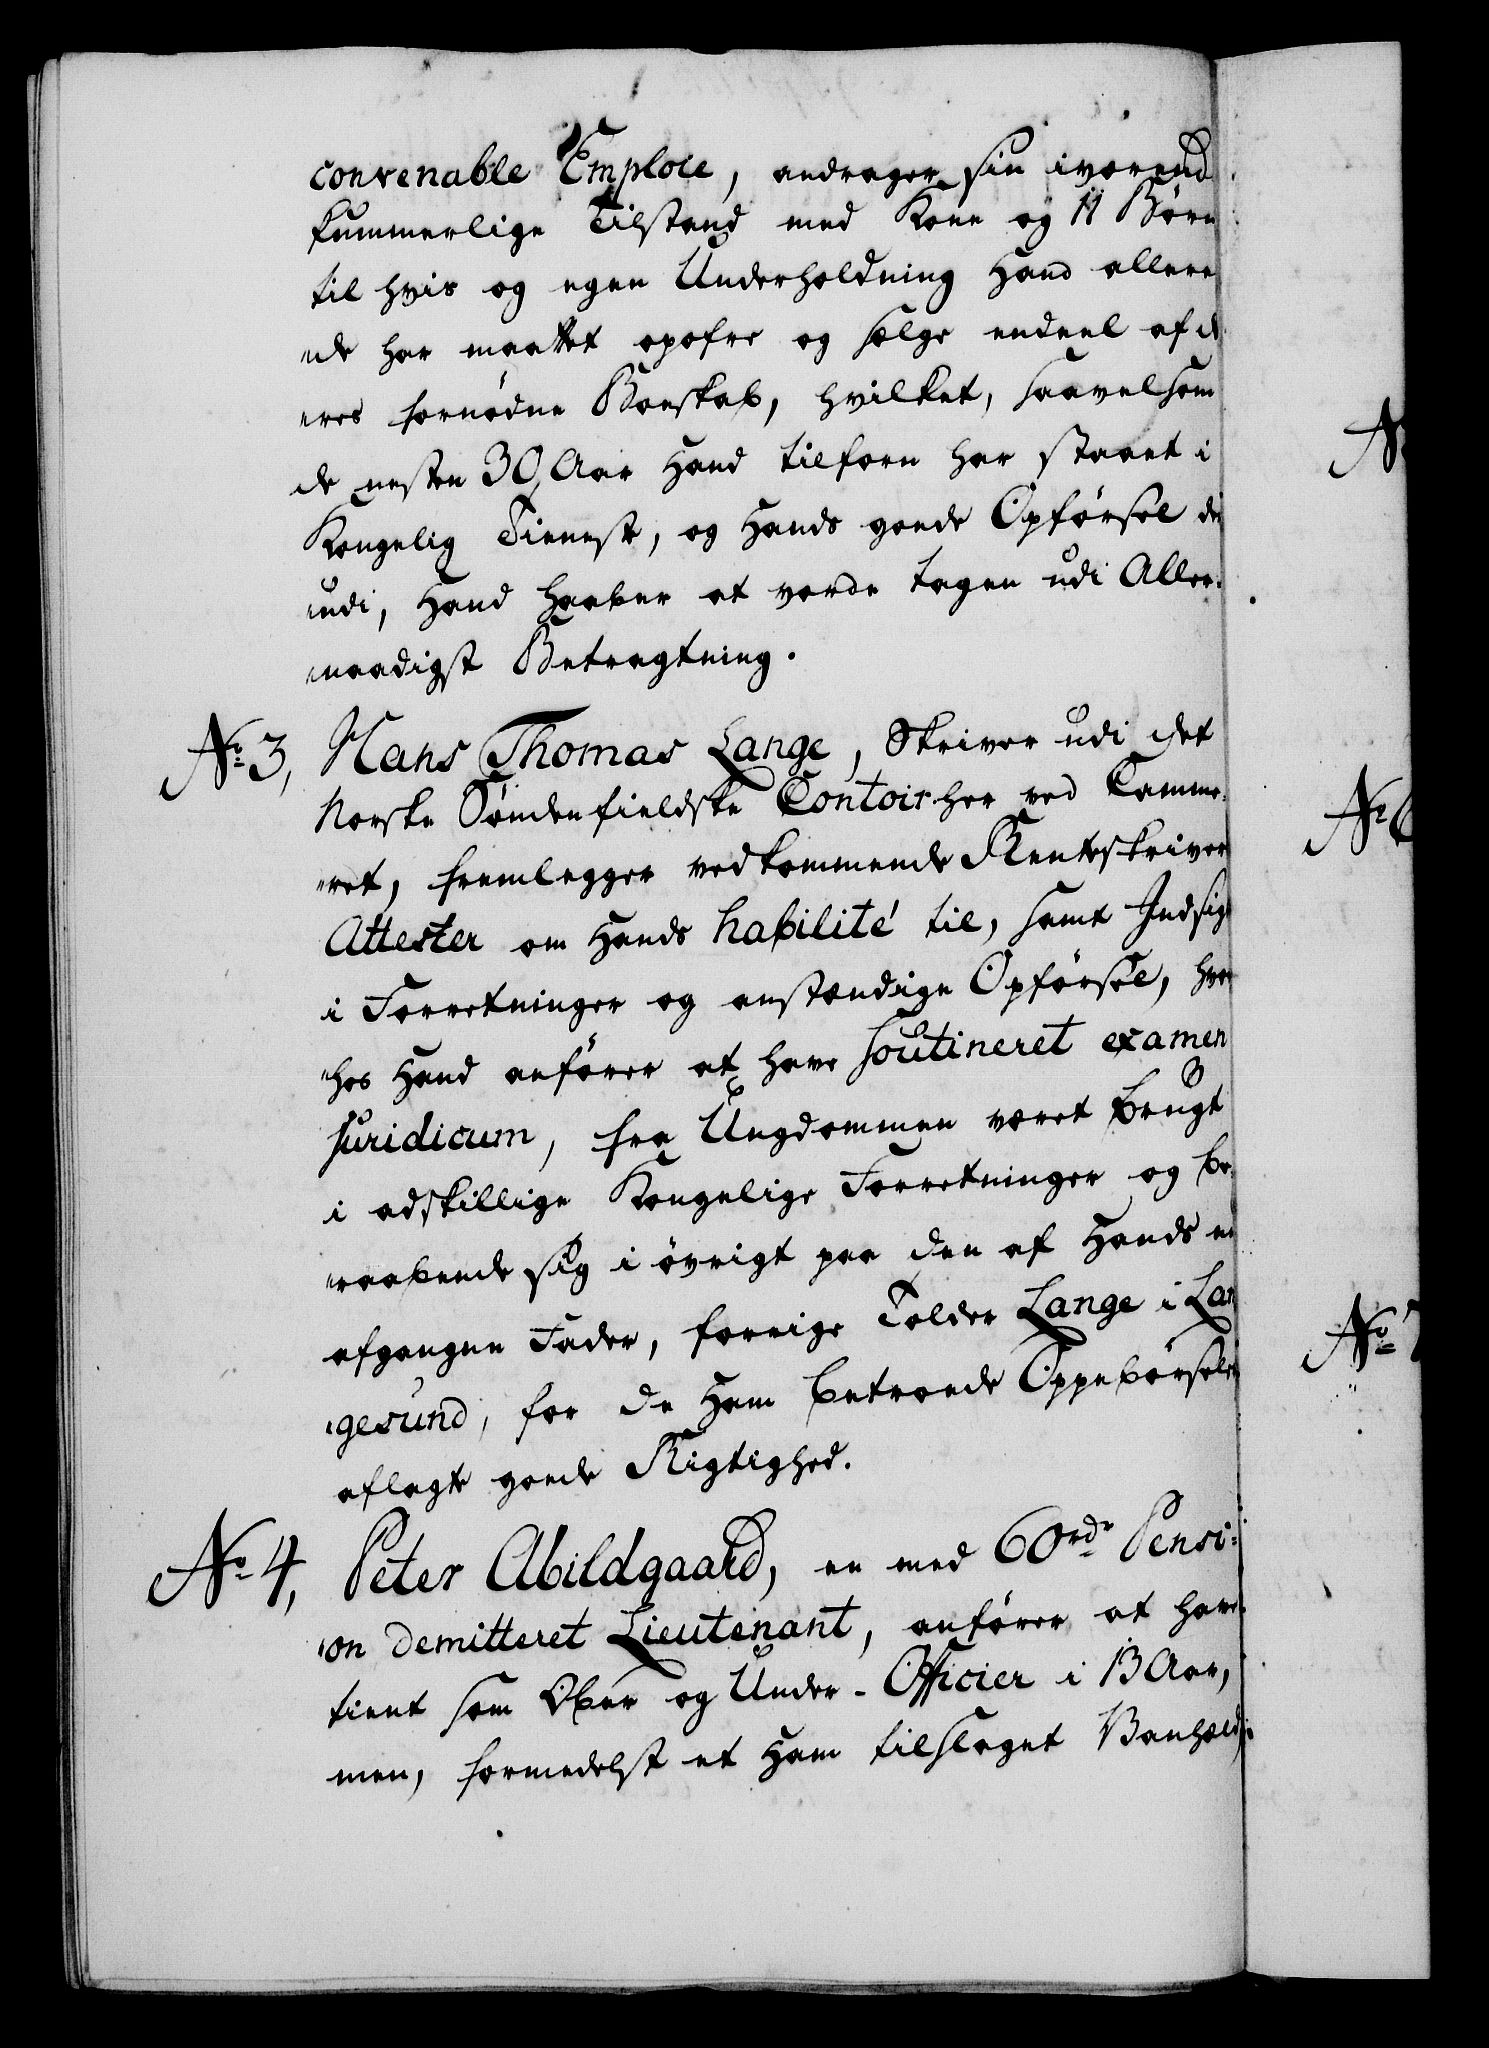 convenable Emploie, andrager sin iværend
kummerlige Tilstand med Kone og 11 Børn
til hvis og egen Underholdning Hand allere
de har maattet opofre og sælge endeel af d
eres fornødne Boeskab, hvilket, saavelsom
de nesten 30 Aar Hand tilforn har staaet i
Kongelig Tieneste, og Hands goede Opførsel der
udi, Hand haaber at vorde tagen udi Aller-
naadigst Betragtning.
No 3, Hans Thomas Lange, Skriver udi det
Norske Søndenfieldske Contoir her ved Camme-
ret, fremlegger vedkommende Renteskriver
Attester om Hands habilité til, samt Indsigt
i Forretninger og anstændige Opførsel, hvor
hos Hand anfører at have soutineret examen
juridicum, fra Ungdommen været brugt
i adskillige Kongelige Forretninger og be-
raabende sig i øvrigt paa den af Hands ved
afgangne Fader, forrige Tolder Lange i Lan
gesund, for de Ham betroede Oppebørseler
aflagte goede Rigtighed.
No 4, Peter Abildgaard, en med 60 rdr Pensi-
on demitteret Lieutenant, anfører at have
tient som Ober og Under-Officier i 13 Aar,
men, formedelst et Ham tilslaget Vanheld
No 6
No 7